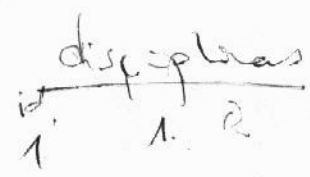 disciplinas
id.
1 1. 2